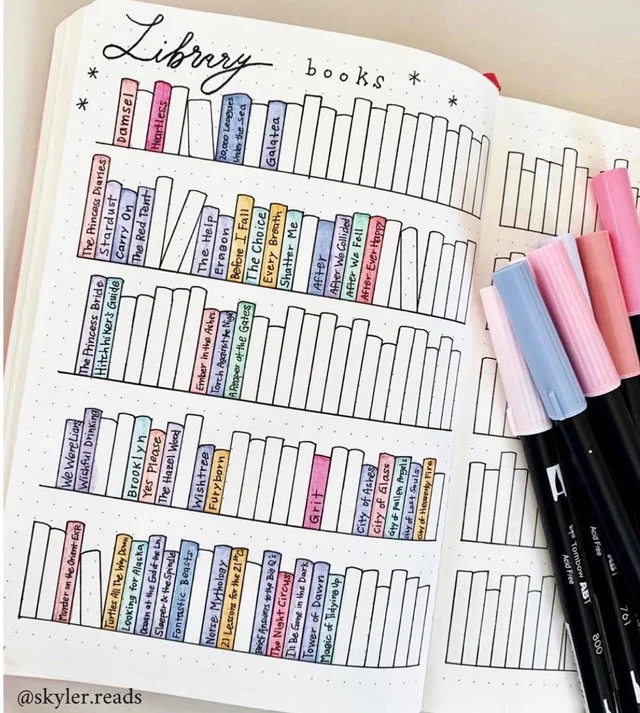 Library books
Damsel
Heartless
20,000 Leagues Under the Sea
Galatea
The Princess Diaries
Stardust
Carry On
The Red Tent
The Help
Eragon
Before I Fall
The Choice
Every Breath
Shatter Me
After
After We Collided
After We Fell
After Ever Happy
The Princess Bride
Hitchhiker's Guide
Ember in the Ashes
Torch Against the Night
A Reaper at the Gates
We Were Liars
Wishful Drinking
Brooklyn
Yes Please
The Hazel Wood
Wishtree
Furyborn
Grit
City of Ashes
City of Glass
City of Fallen Angels
City of Lost Souls
City of Heavenly Fire
Murder on the Orient Exp.
Turtles All the Way Down
Looking for Alaska
Ocean at the End of the Ln.
Sleeper & the Spindle
Fantastic Beasts
Norse Mythology
21 Lessons for the 21st C
Brief Answers to the Big Q's
The Night Circus
I'll Be Gone in the Dark
Tower of Dawn
Magic of Tidying Up
Tombow ABT
Acid Free
Acid Free
800
761
@skyler.reads